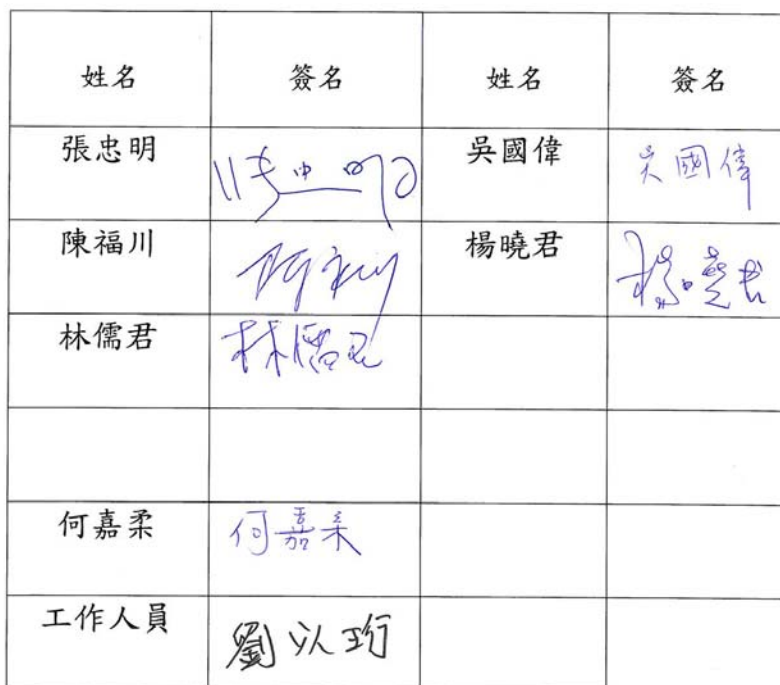 姓名 簽名 姓名 簽名
張忠明 張忠明 吳國偉 吳國偉
陳福川 陳福川 楊曉君 楊曉君
林儒君 林儒君
何嘉柔 何嘉柔
工作人員 劉以珩